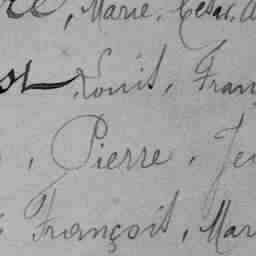 , Marie, César,
Louis, Fran
, Pierre, Je
François, Mar